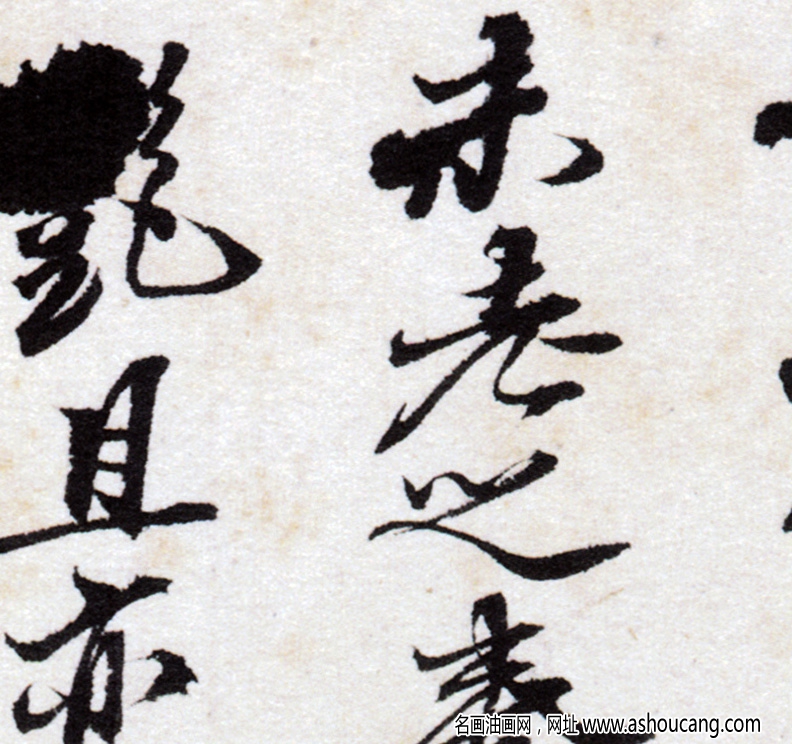 未老之
艷且亦
名画油画网，网址 www.ashoucang.com